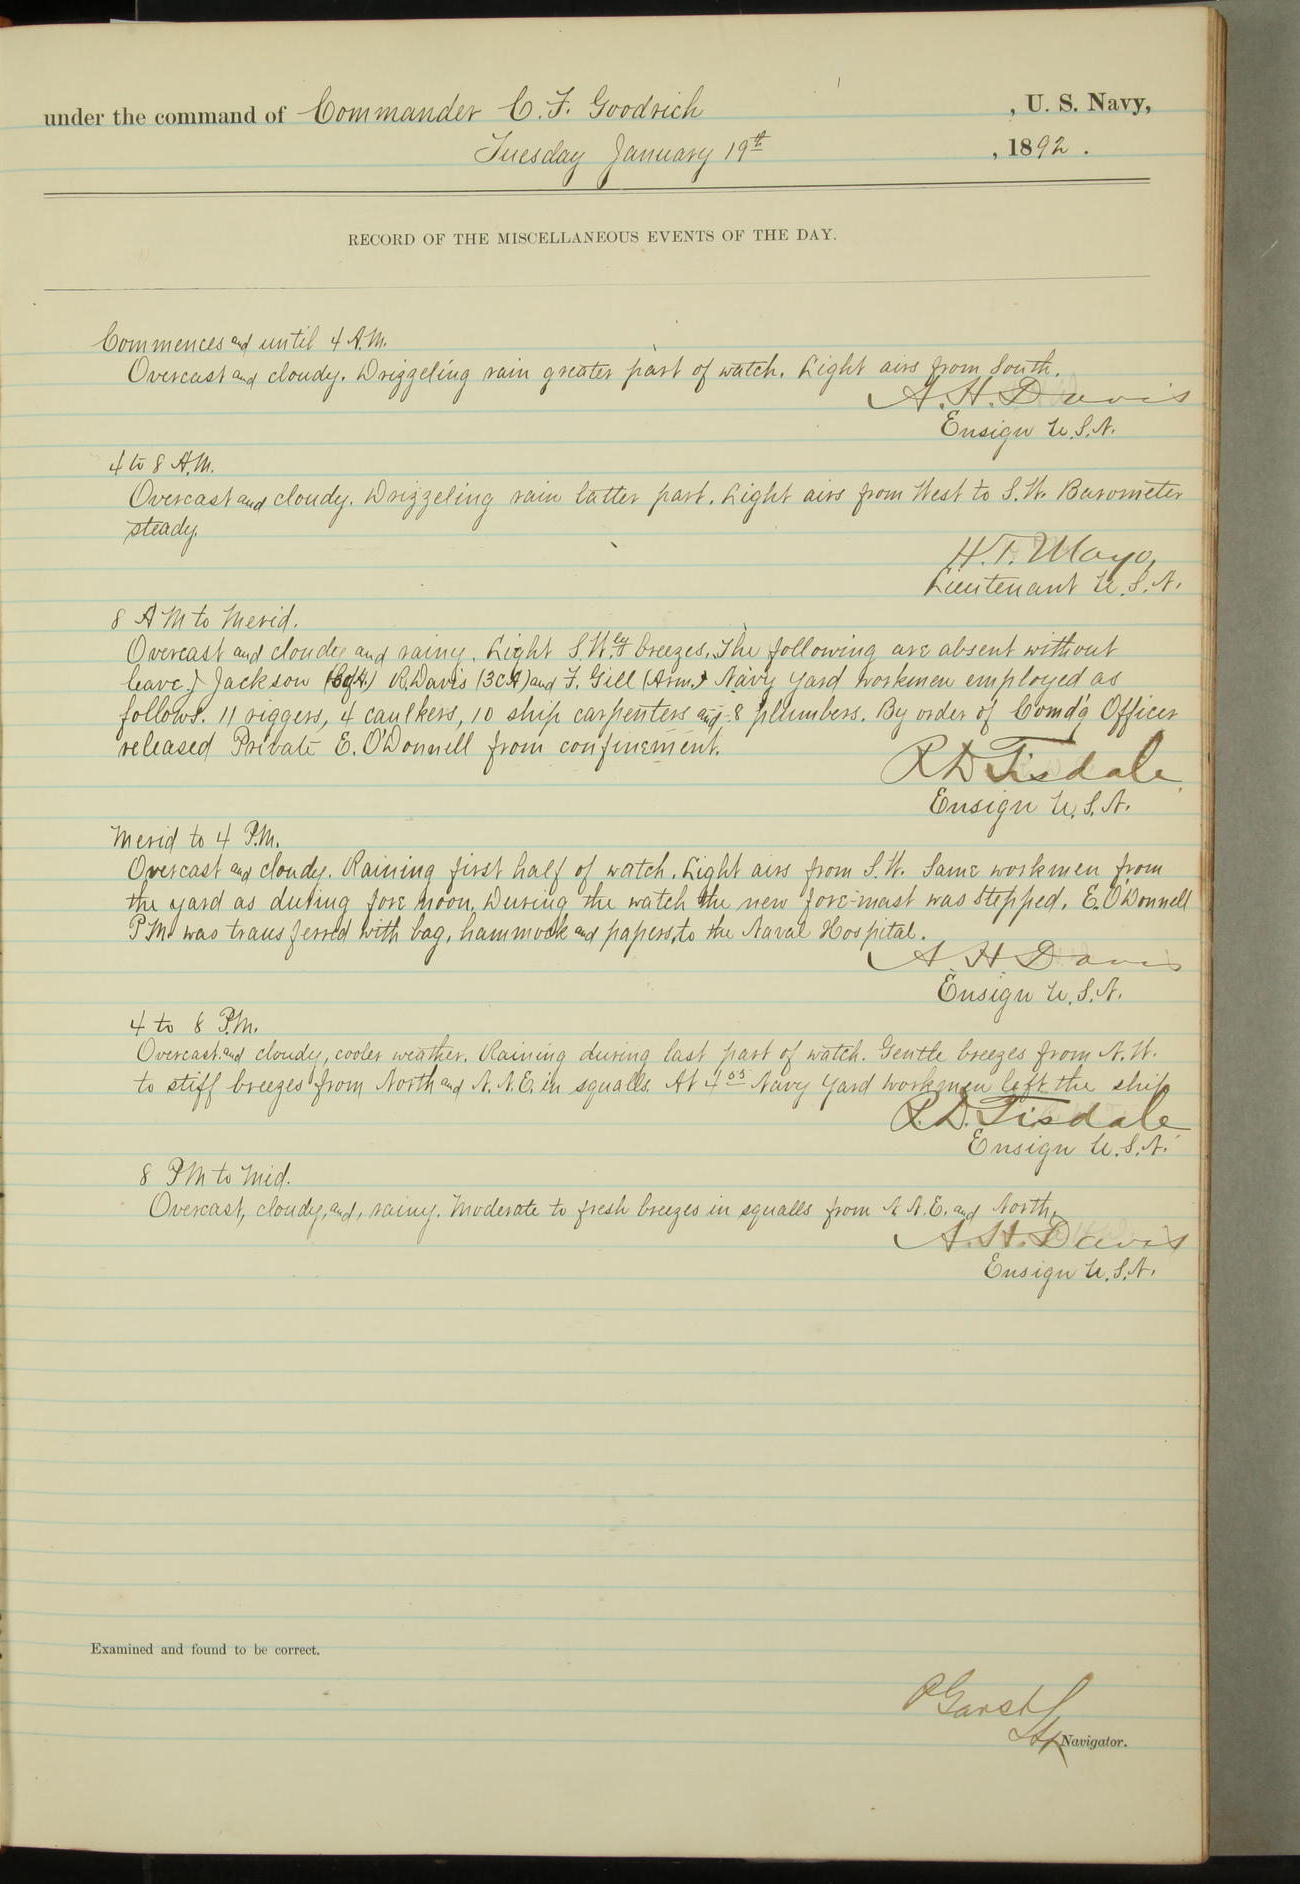 under the command of Commander C. F. Goodrich , U. S. Navy,
Tuesday January 19th , 1892 .
RECORD OF THE MISCELLANEOUS EVENTS OF THE DAY.
Commences and until 4 A.M.
Overcast and cloudy. Drizzeling rain greater part of watch. Light airs from South.
A. H. Davis
Ensign U.S.N.
4 to 8 A.M.
Overcast and cloudy. Drizzeling rain latter part. Light airs from West to S.W. Barometer
steady.
H. T. Mayo,
Lieutenant U.S.N.
8 A M to Merid.
Overcast and cloudy and rainy. Light S.W.ly breezes. The following are absent without
leave J. Jackson R. Davis (3CA) and F. Gill (Arm.) Navy Yard workmen employed as
follows. 11 riggers, 4 caulkers, 10 ship carpenters and 8 plumbers. By order of Comd'g Officer
released Private E. O'Donnell from confinement.
R D Tisdale
Ensign U.S.N.
Merid to 4 P.M.
Overcast and cloudy. Raining first half of watch. Light airs from S.W. Same workmen from
the yard as during fore noon. During the watch the new fore-mast was stepped. E. O'Donnell
P M. was transferred with bag, hammock and papers, to the Naval Hospital.
A. H Davis
Ensign U.S.N.
4 to 8 P.M.
Overcast and cloudy, cooler weather. Raining during last part of watch. Gentle breezes from N.W.
to stiff breezes from North and N.N.E. in squalls. At 4 05 Navy Yard workmen left the ship
R. D. Tisdale
Ensign U.S.N.
8 P M to Mid.
Overcast, cloudy, and, rainy. Moderate to fresh breezes in squalls from N.N.E. and North.
A. H. Davis
Ensign U.S.N.
Examined and found to be correct.
P Garst
Lt Navigator.